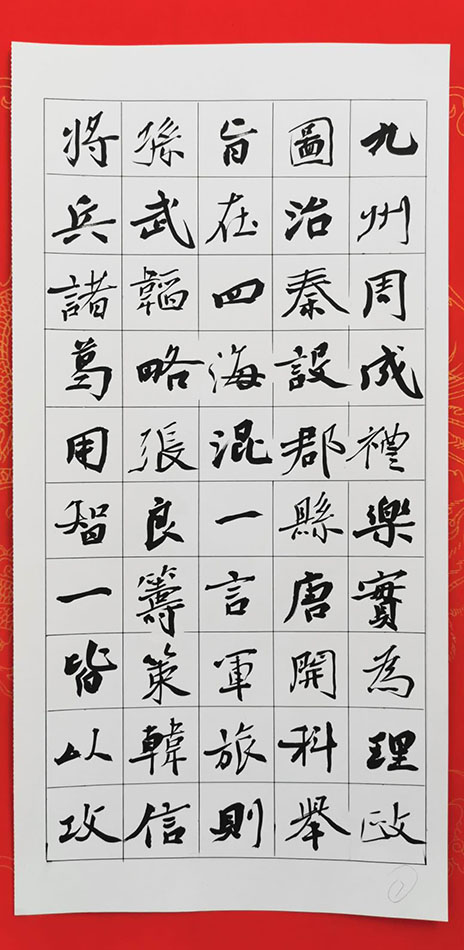 九州周成禮樂實為理政
圖治秦設郡縣唐開科舉
旨在四海混一言軍旅則
孫武韜略張良籌策韓信
將兵諸葛用智一皆以攻